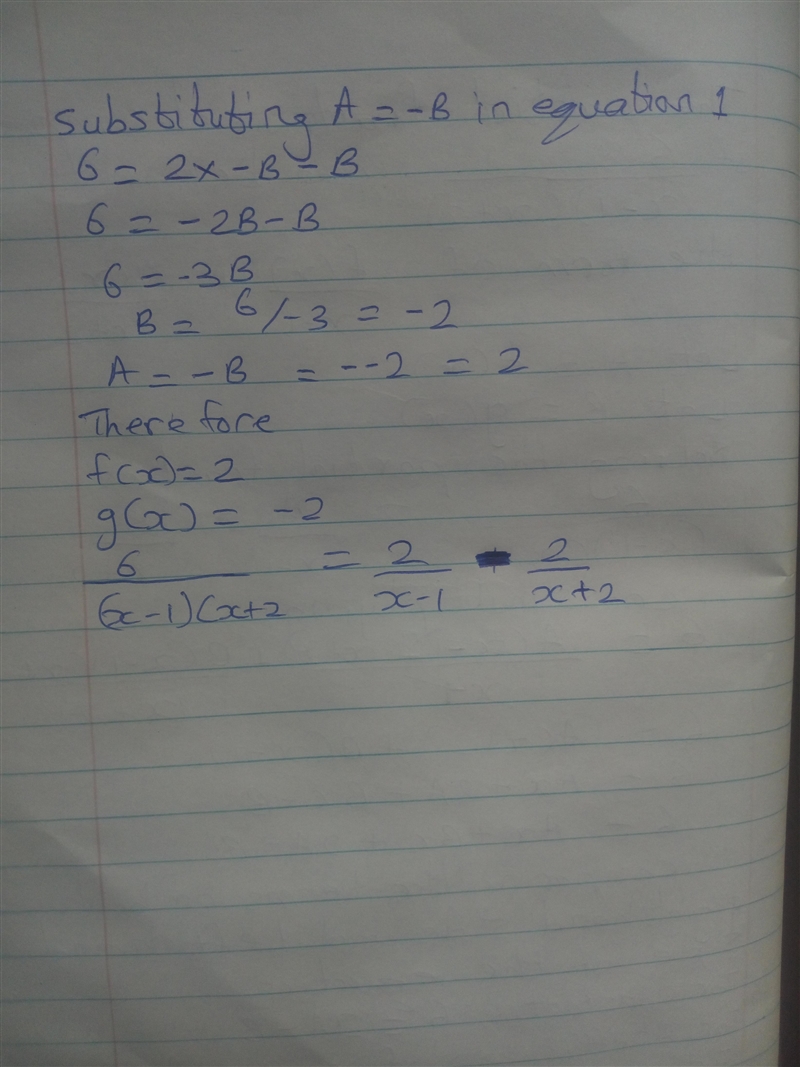 Substituting A = -B in equation 1
6 = 2x -B - B
6 = -2B - B
6 = -3B
B = 6/-3 = -2
A = -B = --2 = 2
Therefore
f(x) = 2
g(x) = -2
6/(x-1)(x+2 = 2/x-1 - 2/x+2